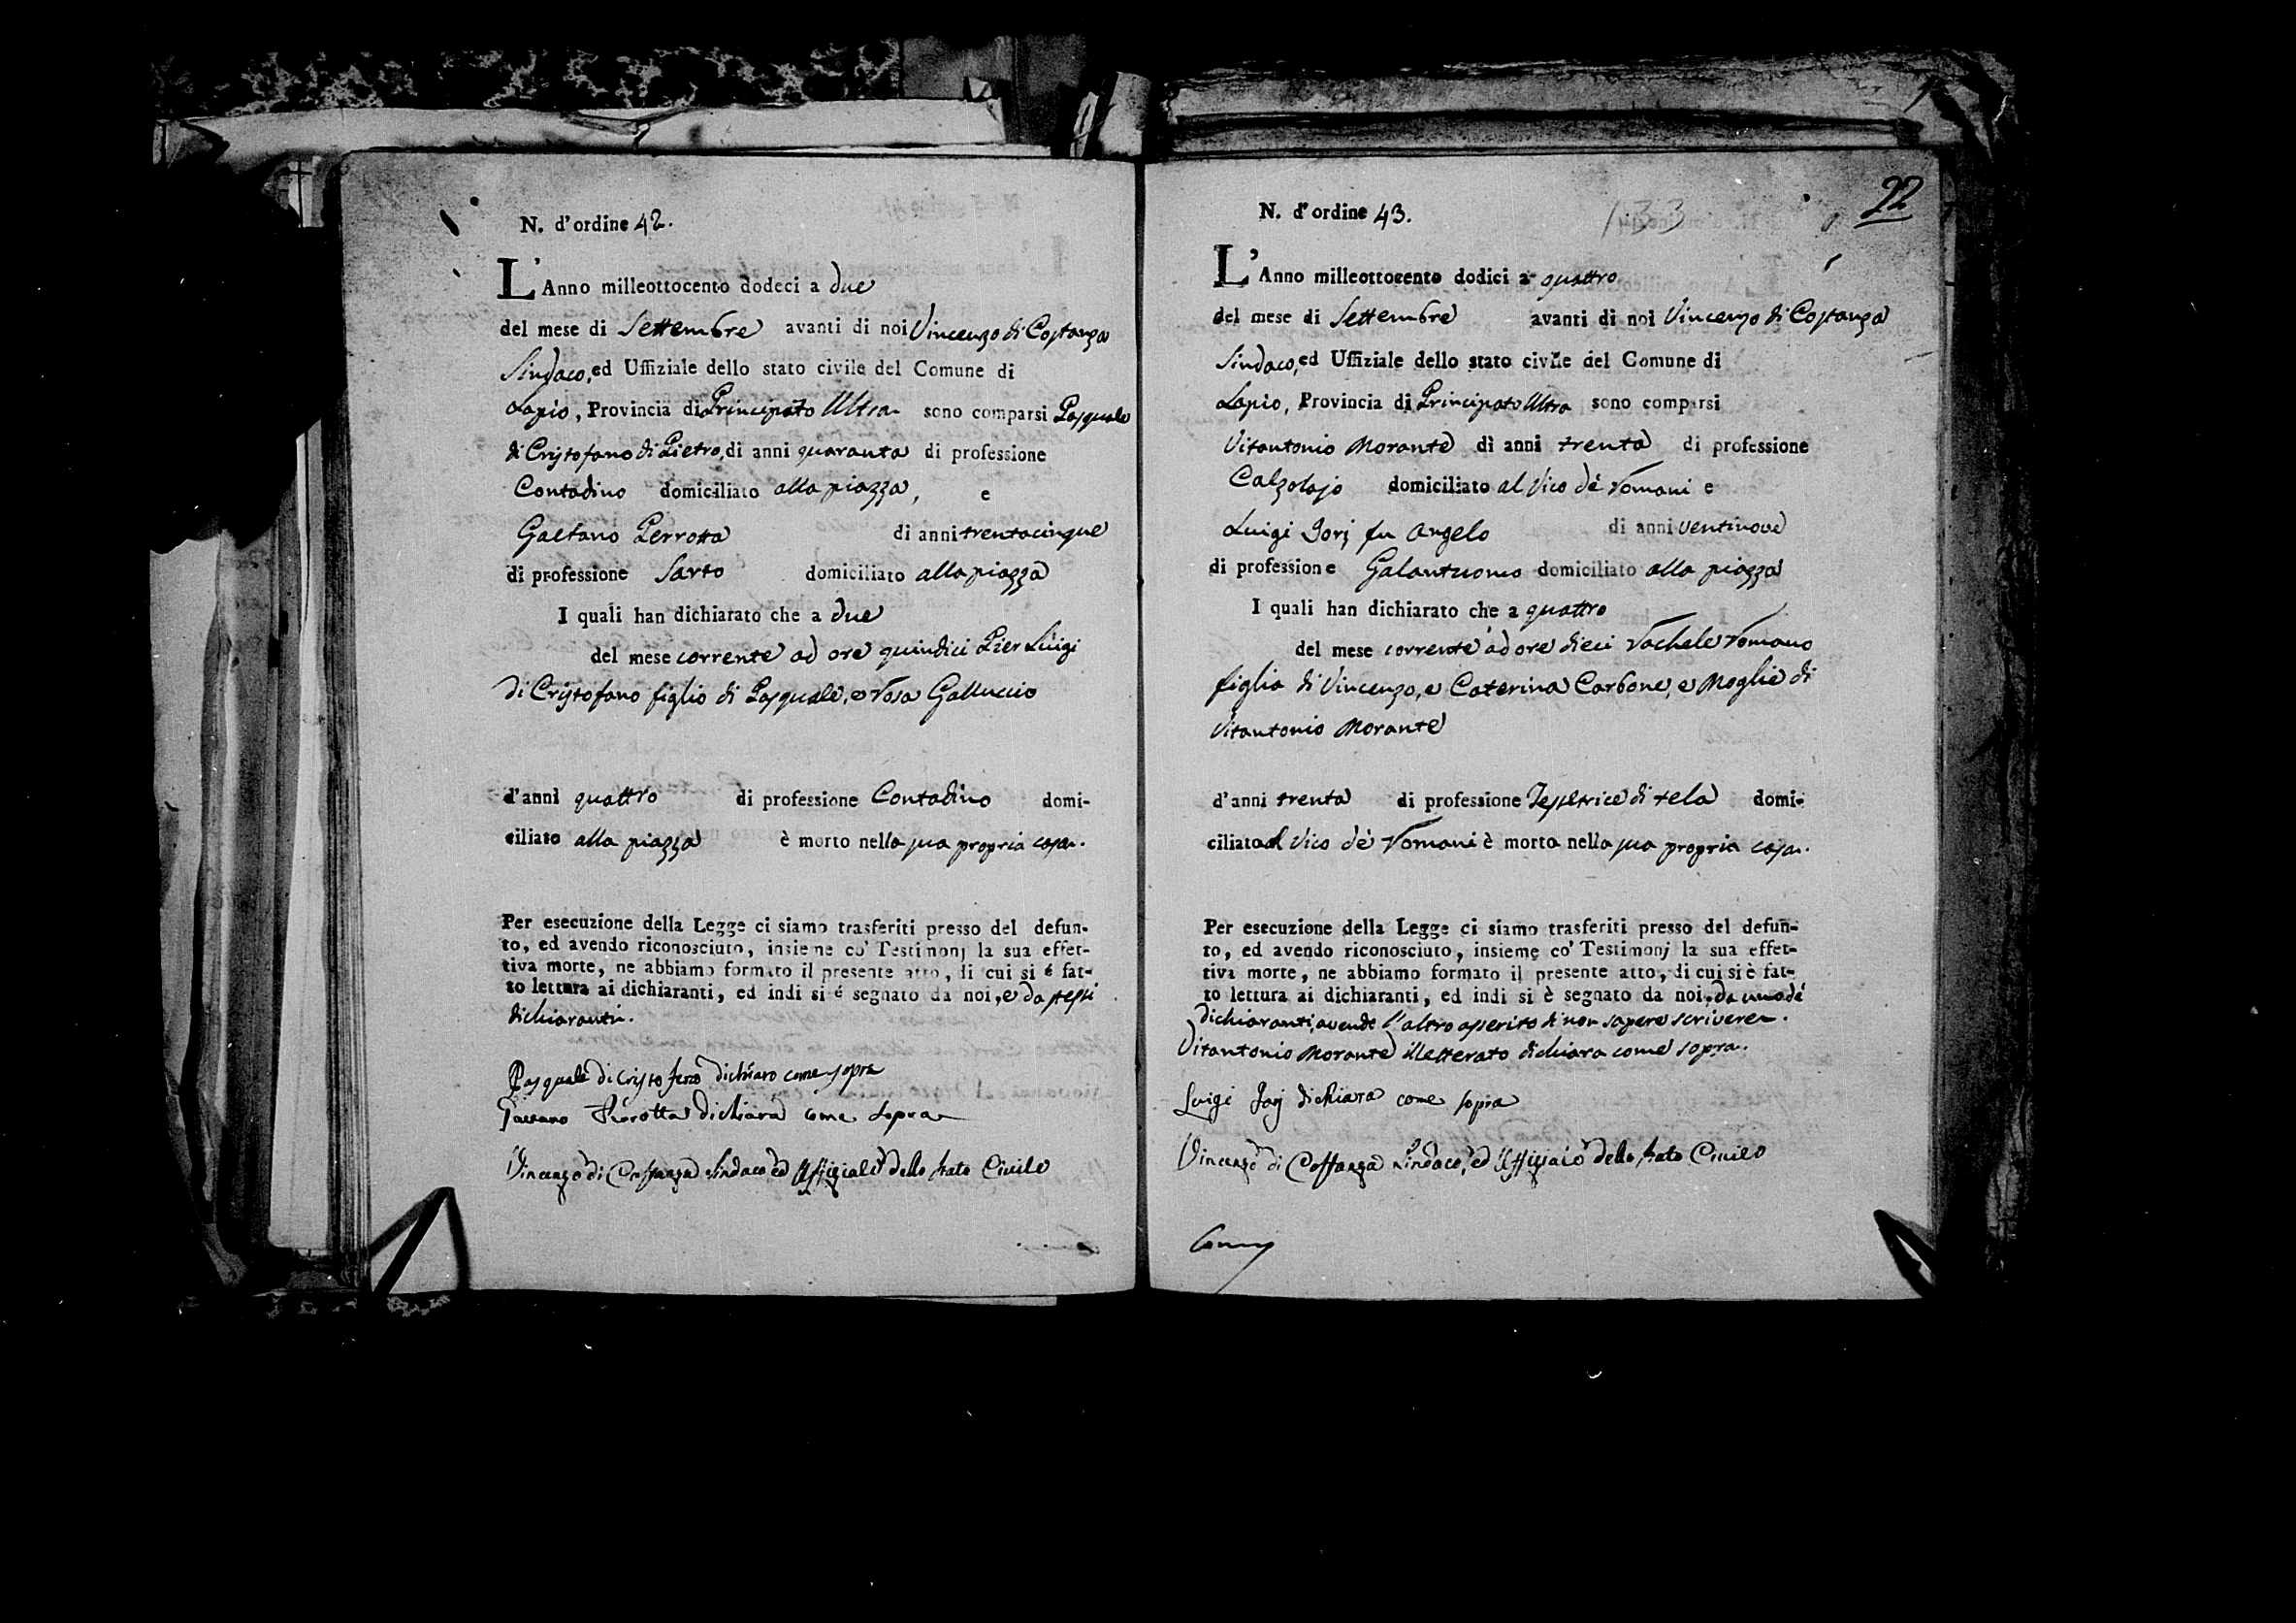 N. d'ordine 42.
L'Anno milleottocento dodeci a due
del mese di Settembre avanti di noi Vincenzo di Costanza
Sindaco, ed Uffiziale dello stato civile del Comune di
Lapio, Provincia di Principato Ultra sono comparsi Pasquale
di Cristofano di Pietro, di anni quaranta di professione
Contadino domiciliato alla piazza, e
Gaetano Perrotta di anni trentacinque
di professione Sarto domiciliato alla piazza
I quali han dichiarato che a due
del mese corrente ad ore quindici Pier Luigi
di Cristofano figlio di Pasquale, e Rosa Galluccio
d'anni quattro di professione Contadino domi-
ciliato alla piazza è morto nella sua propria casa.
Per esecuzione della Legge ci siamo trasferiti presso del defun-
to, ed avendo riconosciuto, insieme co' Testimonj la sua effet-
tiva morte, ne abbiamo formato il presente atto, di cui si é fat-
to lettura ai dichiaranti, ed indi si é segnato da noi, e da stessi
dichiaranti.
Pasquale di Cristofano dichiaro come sopra
Gaetano Perotta dichiara come sopra
Vincenzo di Costanza Sindaco ed Uffiziale dello stato Civile
22
N. d'ordine 43.
133
L'Anno milleottocento dodici a quattro
del mese di Settembre avanti di noi Vincenzo di Costanza
Sindaco, ed Uffiziale dello stato civile del Comune di
Lapio, Provincia di Principato Ultra sono comparsi
Vitantonio Morante di anni trenta di professione
Calzolajo domiciliato al Vico de' Romani e
Luigi Jorj fu Angelo di anni ventinove
di professione Galantuomo domiciliato alla piazza
I quali han dichiarato che a quattro
del mese corrente ad ore dieci Rachele Romano
figlia di Vincenzo, e Caterina Carbone, e Moglie di
Vitantonio Morante
d'anni trenta di professione Tessitrice di tela domi-
ciliata al Vico de' Romani è morta nella sua propria casa.
Per esecuzione della Legge ci siamo trasferiti presso del defun-
to, ed avendo riconosciuto, insieme co' Testimonj la sua effet-
tiva morte, ne abbiamo formato il presente atto, di cui si è fat-
to lettura ai dichiaranti, ed indi si è segnato da noi, da uno de'
dichiaranti, avendo l'altro asserito di non sapere scrivere.
Vitantonio Morante illetterato dichiara come sopra.
Luigi Jorj dichiara come sopra
Vincenzo di Costanza Sindaco, ed Uffiziale dello stato Civile